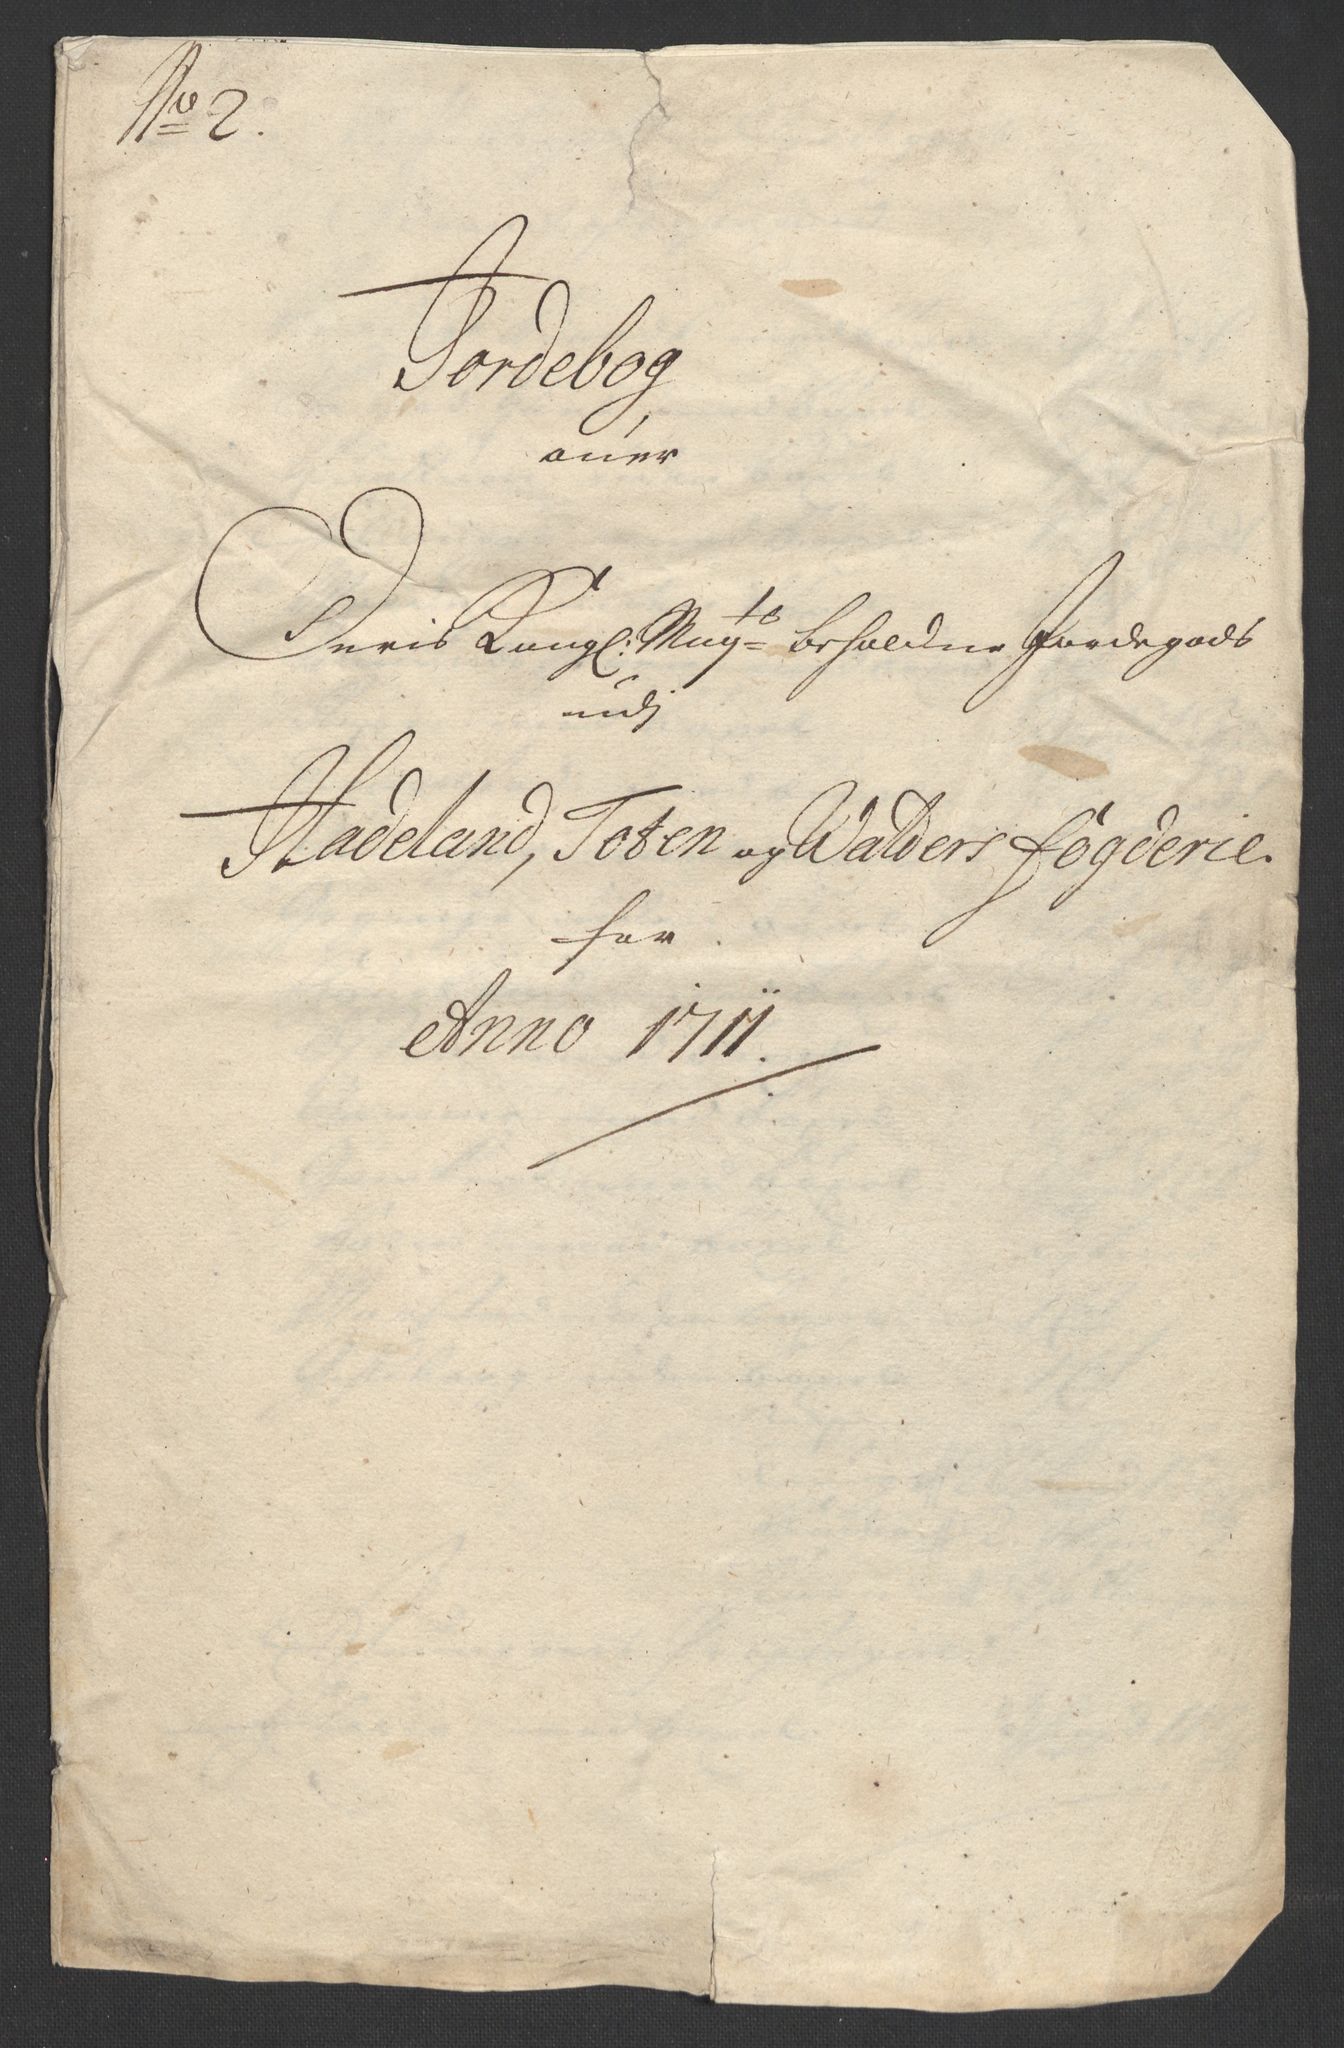 No 2.
Jordebog
ouer
Deris Kongl: Mayts beholdne Jordegods
udj
Hadeland, Toten og Walders fögderie
for
Anno 1711.